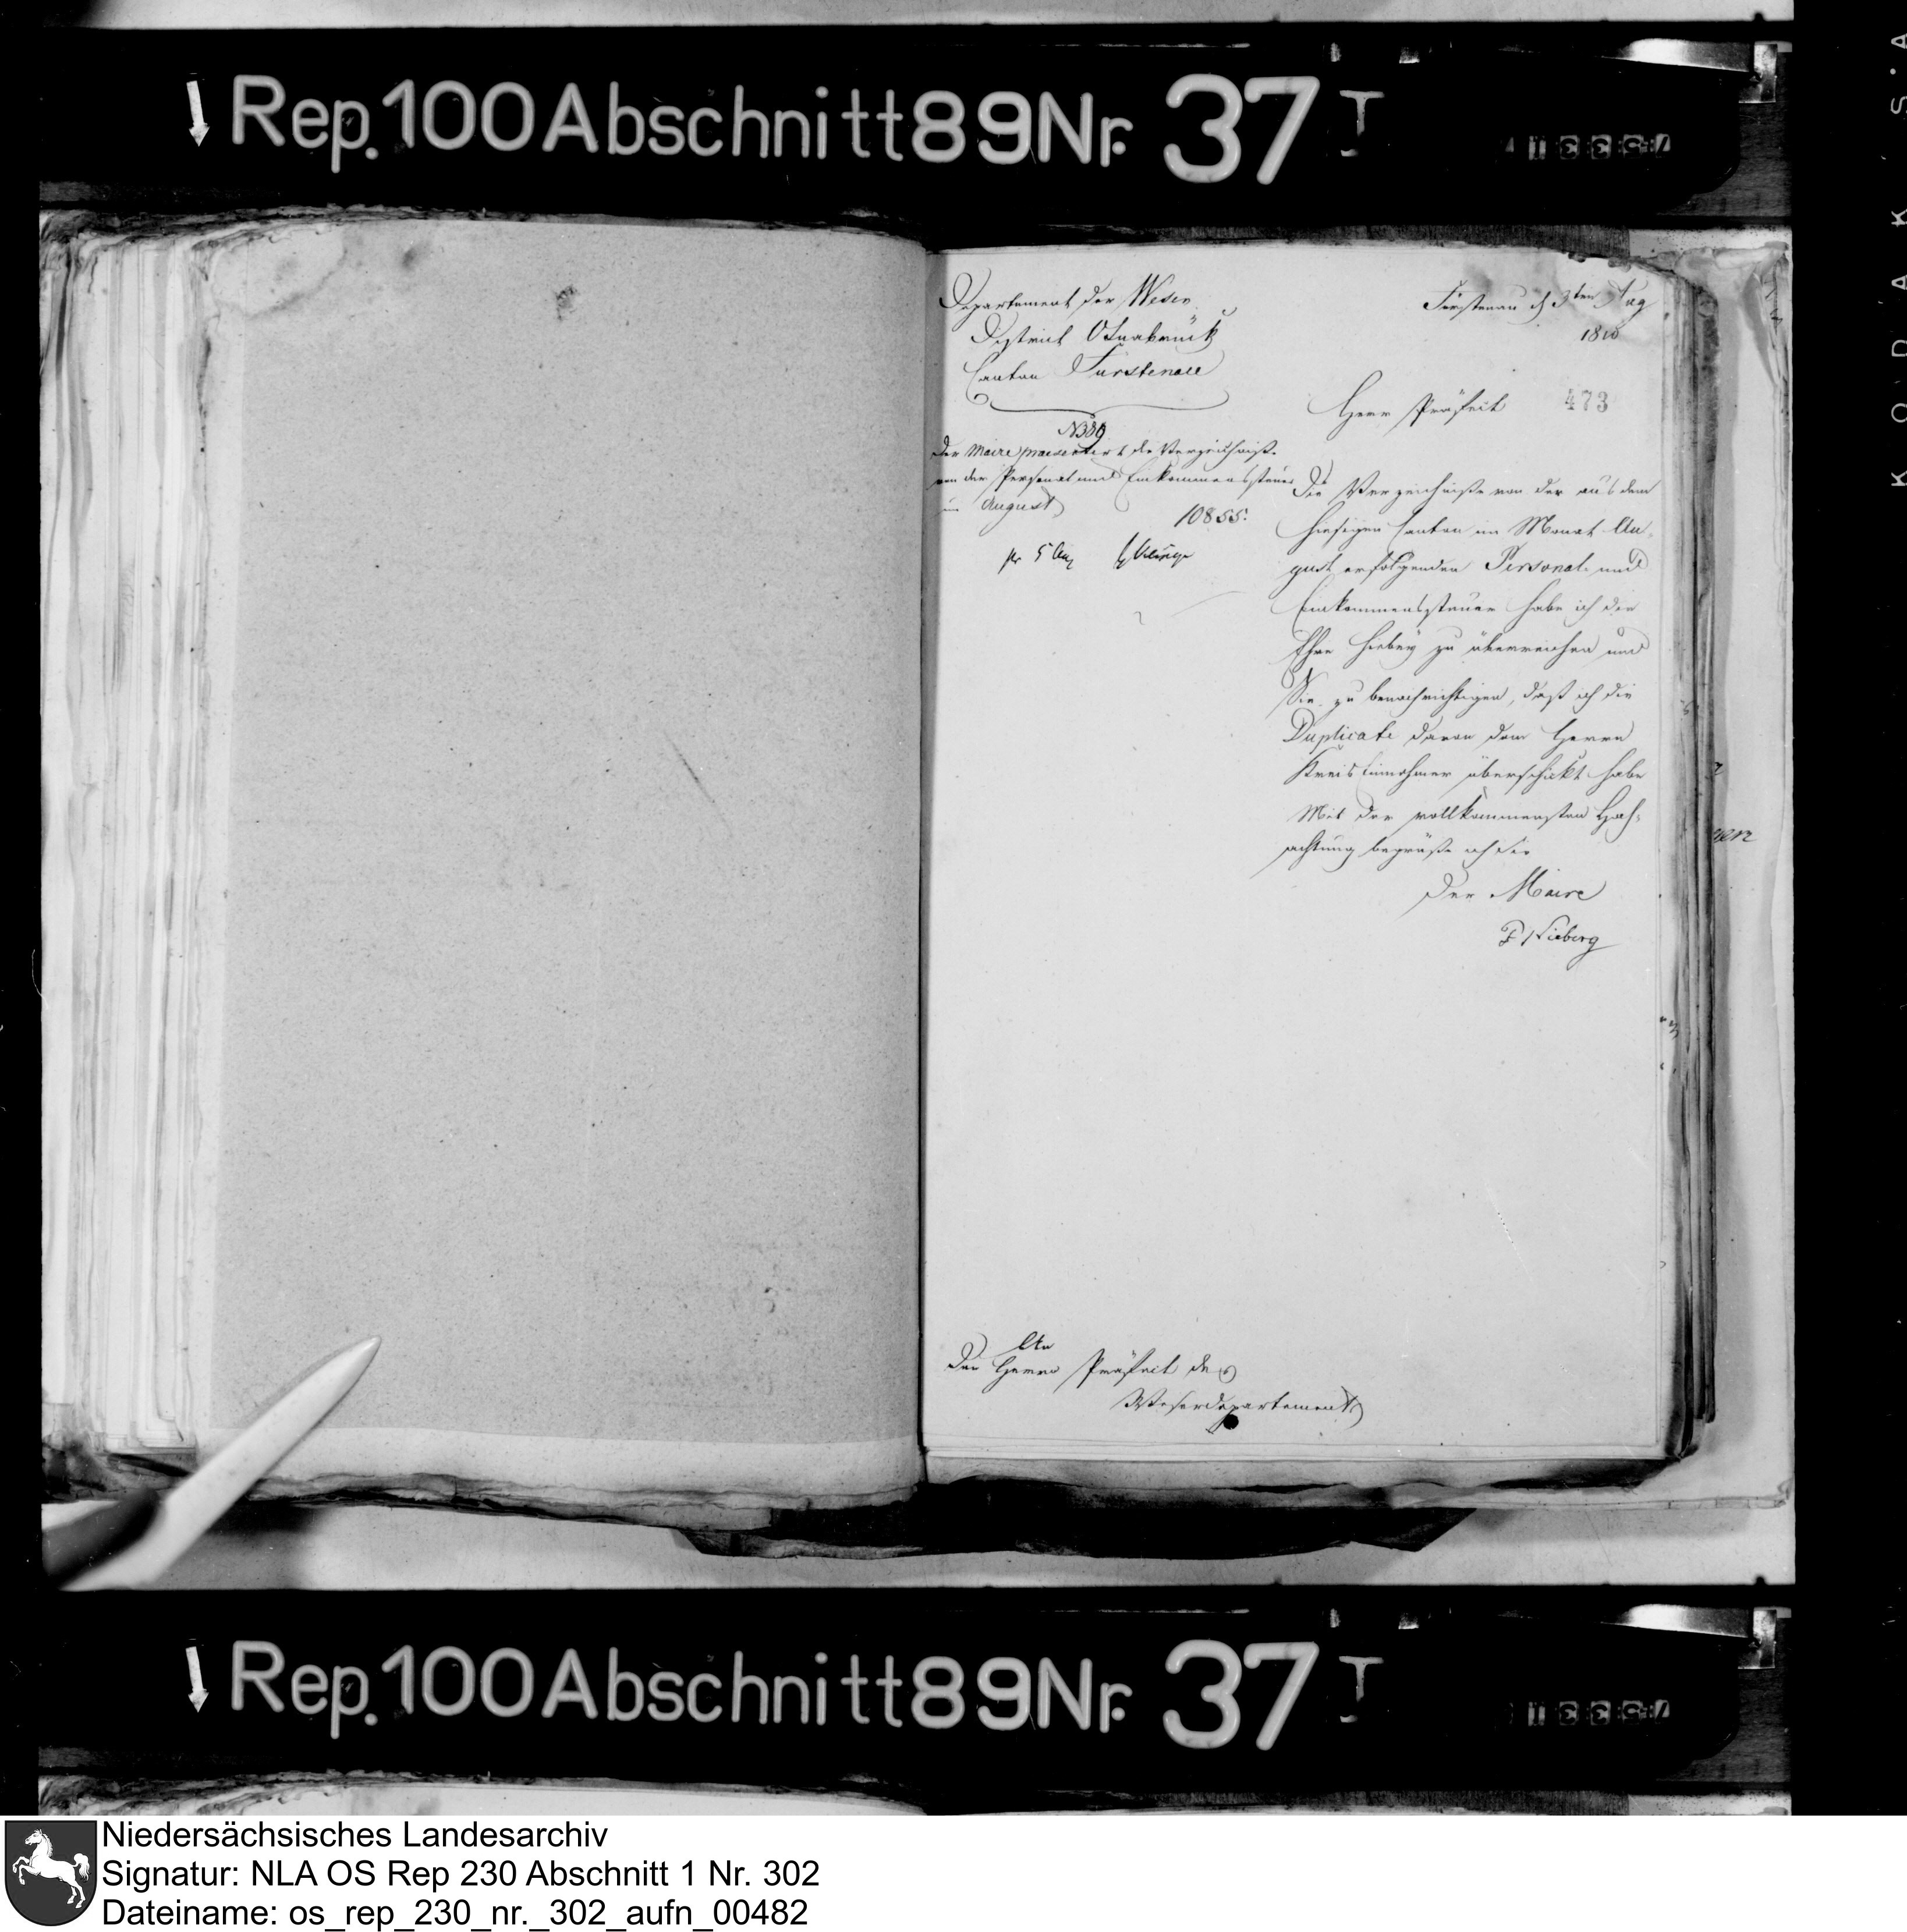 Rep. 100 Abschnitt 89 Nr. 37 I
Departement der Weser
District Osnabrück
Canton Fürstenau
Fürstenau d 3ten Aug
1808
Herr Präfect
473
Der Maire praesentirt die Verzeichniße
von der Personal und Einkommenssteuer
im August
10855.
pr 5 Aug
Die Verzeichniße von der aus dem
hiesigen Canton im Monat Au-
gust erfolgenden Personal- und
Einkommenssteuer habe ich die
Ehre hiebey zu überreichen und
Sie zu benachrichtigen, daß ich die
Duplicate davon dem Herrn
Kreiseinnehmer überschickt habe
Mit der vollkommensten Hoch-
achtung begrüße ich Sie
Der Maire
F Nieberg
An
Den Herrn Präfect des
Weserdepartements
Rep. 100 Abschnitt 89 Nr. 37 I
KODAK S.A
Niedersächsisches Landesarchiv
Signatur: NLA OS Rep 230 Abschnitt 1 Nr. 302
Dateiname: os_rep_230_nr._302_aufn_00482